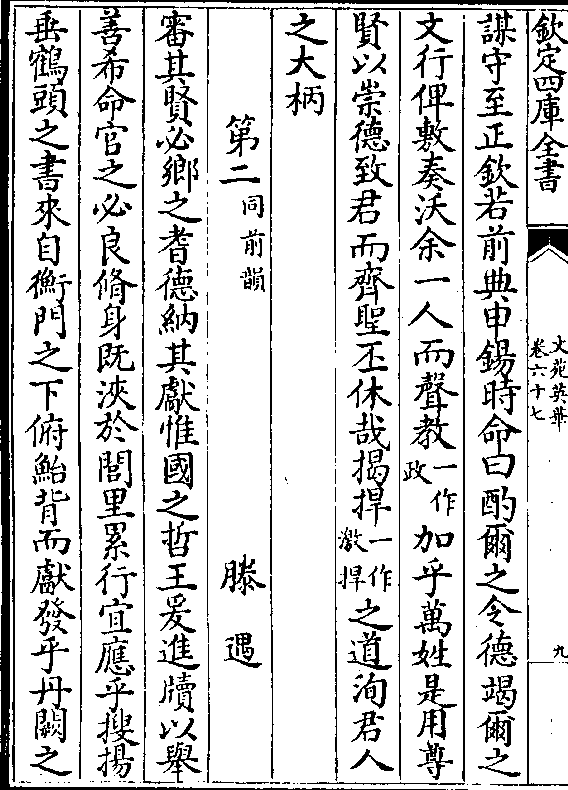 欽定四庫全書
文苑英華
卷六十七
九
謀守至正欽若前典申錫時命曰酌爾之令德竭爾之
文行俾敷奏沃余一人而聲教一作政加乎萬姓是用尊
賢以崇德致君而齊聖丕休哉揭捍一作激捍之道洵君人
之大柄
第二同前韻 滕遇
審其賢必鄉之耆德納其獻惟國之哲王爰進牘以舉
善希命官之必良脩身既浹於閭里累行宜應乎搜揚
垂鶴頭之書來自衡門之下俯鮐背而獻發乎丹闕之